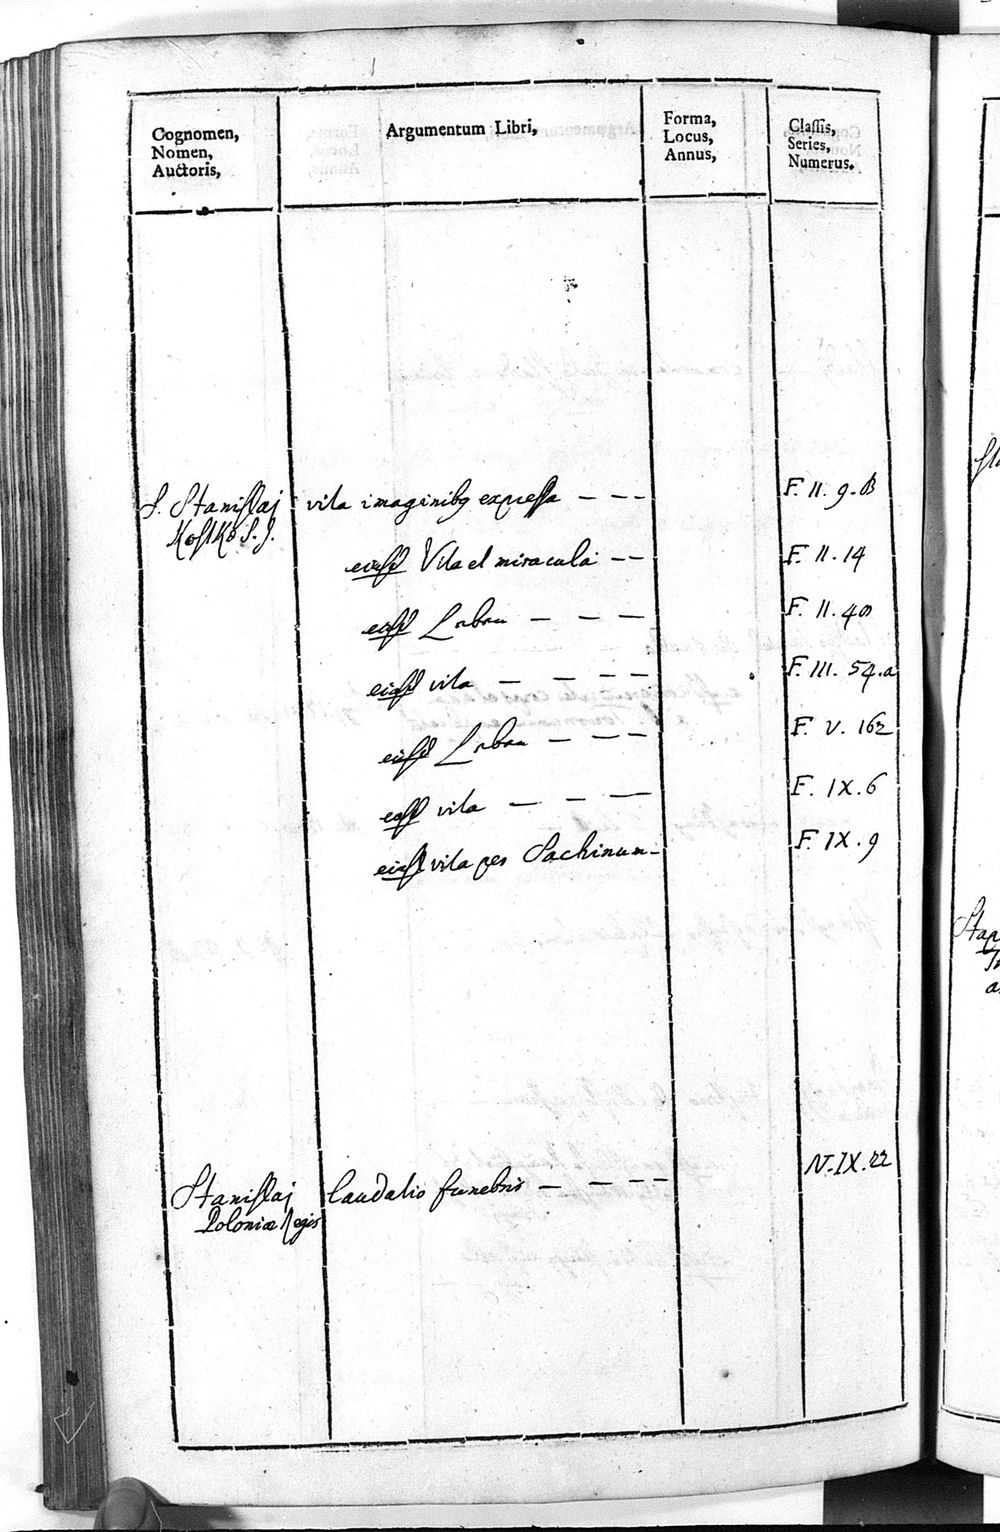 Cognomen,
Nomen,
Auctoris,
Argumentum Libri,
Forma,
Locus,
Annus,
Classis,
Series,
Numerus.
S. Stanislaj vita imaginibq expressa - - - F. II. 9. B
Kostka S. J.
eiusd Vita et miracula - - F. II. 14
eiusd - - - F. II. 40
eiusd vita - - - - F. III. 54. a
eiusd - - - F. V. 162
eiusd vita - - - F. IX. 6
eiusd vita per Sachinum - F. IX. 9
Stanislaj laudatio funebris - - - - N. IX. 22
Poloniæ Regis